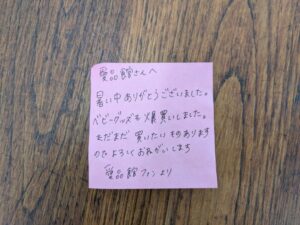 愛品館さんへ
暑い中ありがとうございました。
ベビーグッズも爆買いしました。
まだまだ買いたいものあります
のでよろしくおねがいします
愛品館ファンより